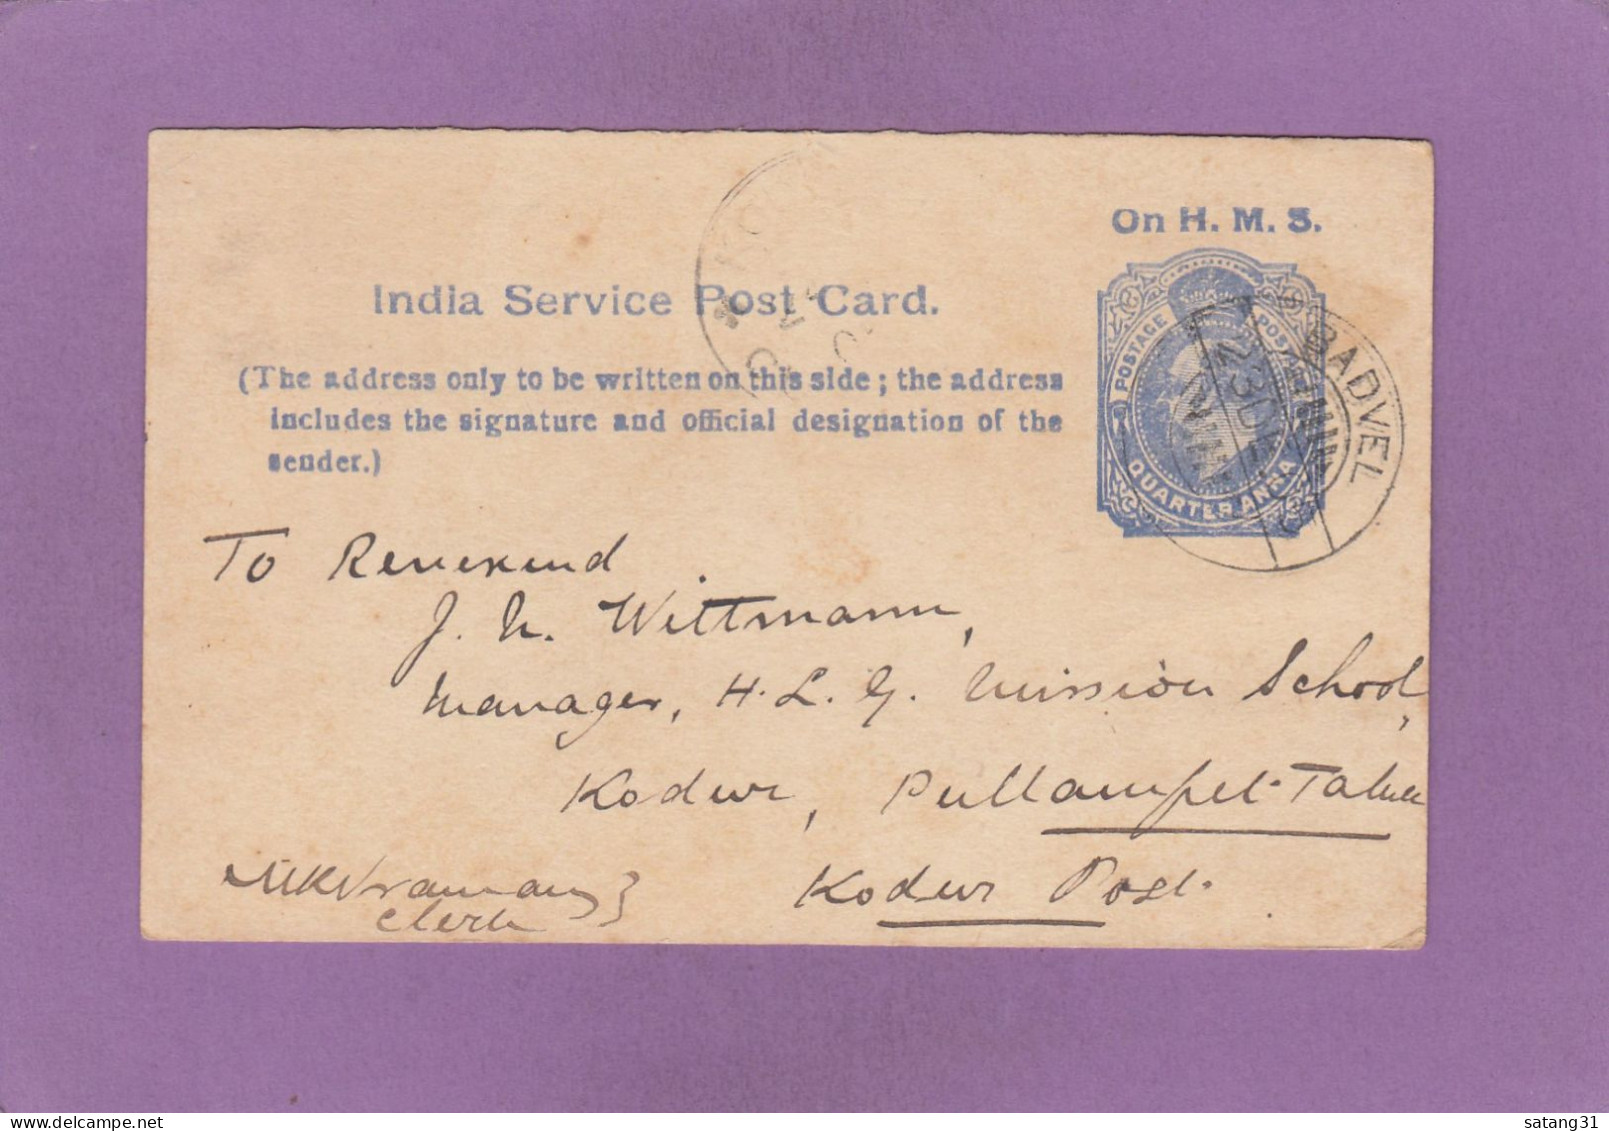 On H. M. S.
India Service Post Card.
(The address only to be written on this side; the address
includes the signature and official designation of the
sender.)
POSTAGE
QUARTER ANNA
BADVEL
23 DE
To Reverend
J. N. Wittmann,
Manager, H. L. G. Mission School,
Kodur, Pullampet Taluk
Kodur Post.
Clerk
satang31